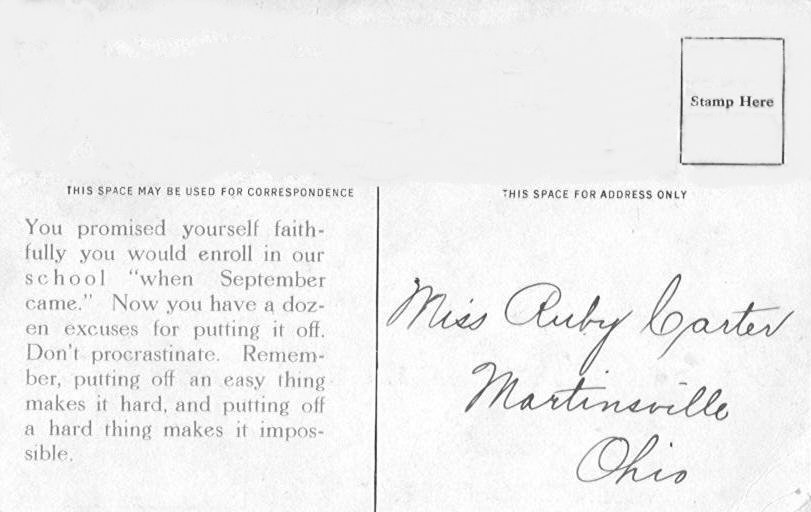 Stamp Here
THIS SPACE MAY BE USED FOR CORRESPONDENCE
THIS SPACE FOR ADDRESS ONLY
You promised yourself faith-
fully you would enroll in our
school "when September
came." Now you have a doz-
en excuses for putting it off.
Don't procrastinate. Remem-
ber, putting off an easy thing
makes it hard, and putting off
a hard thing makes it impos-
sible.
Miss Ruby Carter
Martinsville
Ohio